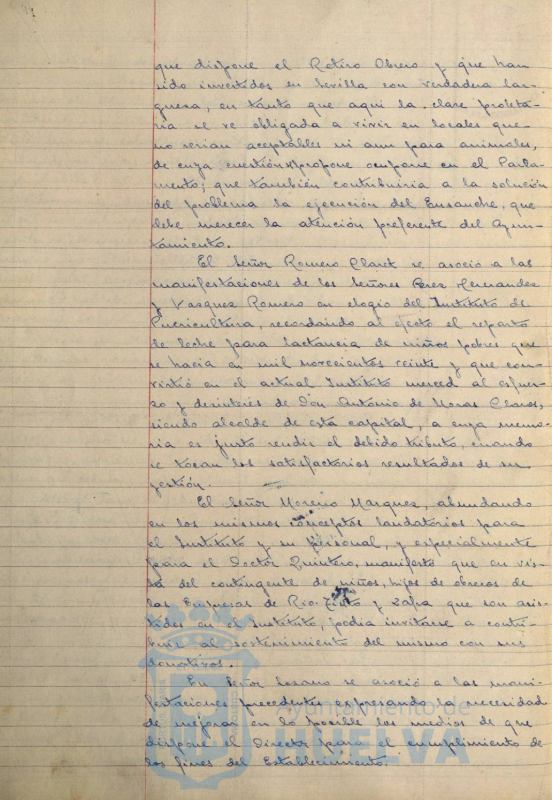 que dispone el Retiro Obrero y que han
sido invertidos en Sevilla con verdadera lar-
gueza, en tanto que aqui la clase proleta-
ria se ve obligada a vivir en locales que
no serian aceptables ni aun para animales,
de cuya cuestión propone ocuparse en el Parla-
mento; que también contribuiria a la solución
del problema la ejecución del Ensanche, que
debe merecer la atención preferente del Ayun-
tamiento.
El Señor Romero Claret se asoció a las
manifestaciones de los Señores Perez Hernandez
y Vasquez Romero en elogio del Instituto de
Puericultura, recordando al efecto el reparto
de leche para lactancia de niños pobres que
se hacia en mil novecientos veinte y que con-
virtió en el actual Instituto merced al esfuer-
zo y desinterés de Don Antonio de Moras Claros,
siendo alcalde de esta capital, a cuya memo-
ria es justo rendir el debido tributo, cuando
se tocan los satisfactorios resultados de su
gestión.
El Señor Moreno Marquez abundando
en los mismos conceptos laudatorios para
el Instituto y su personal, y especialmente
para el Doctor Quintero, manifestó que en vis-
ta del contingente de niños, hijos de obreros de
las Empresas de Rio-Tinto y Zafra que son asis-
tidos en el Instituto, podia invitarse a contri-
buir al sostenimiento del mismo con sus
donativos.
El Señor Lozano se asoció a las mani-
festaciones precedentes expresando la necesidad
de mejorar en lo posible los medios de que
dispone el Director para el cumplimiento de
los fines del Establecimiento.
Ayuntamiento de
HUELVA